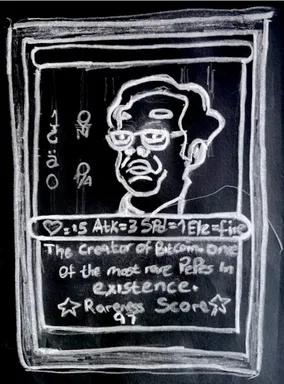 ♡=15 Atk=3 Spd=1 Ele=fire
The creator of Bitcoin. One
of the most rare PePes in
existence.
☆ Rareness Score ☆
97